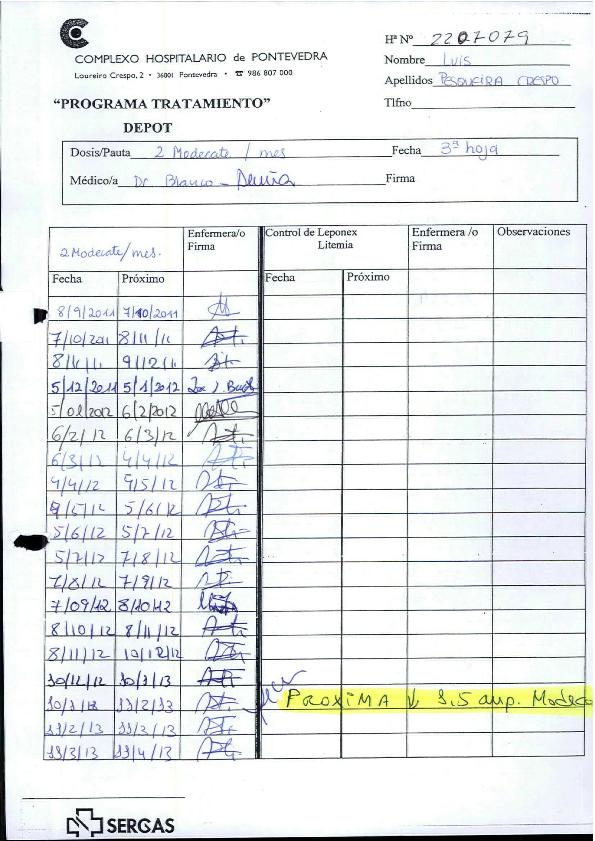 COMPLEXO HOSPITALARIO de PONTEVEDRA
Loureiro Crespo, 2 • 36001 Pontevedra • ☎ 986 807 000
Hª Nº 2207079
Nombre LUIS
Apellidos PESQUEIRA CRESPO
Tlfno
“PROGRAMA TRATAMIENTO”
DEPOT
Dosis/Pauta 2 Modecate / mes Fecha 3ª hoja
Médico/a Dr Blanco - Firma
2 Modecate/mes. Enfermera/o Firma Control de Leponex Litemia Enfermera /o Firma Observaciones
Fecha Próximo Fecha Próximo
8/9/2011 7/10/2011
7/10/2011 8/11/11
8/11/11 9/12/11
5/12/2011 5/1/2012
5/01/2012 6/2/2012
6/2/12 6/3/12
6/3/12 4/4/12
4/4/12 9/5/12
9/5/12 5/6/12
5/6/12 5/7/12
5/7/12 7/8/12
7/8/12 7/9/12
7/09/12 8/10/12
8/10/12 8/11/12
8/11/12 10/12/12
10/12/12 10/1/13
10/1/13 11/2/13 PROXIMA 1,5 amp. Modeca
11/2/13 11/3/13
11/3/13 11/4/13
SERGAS